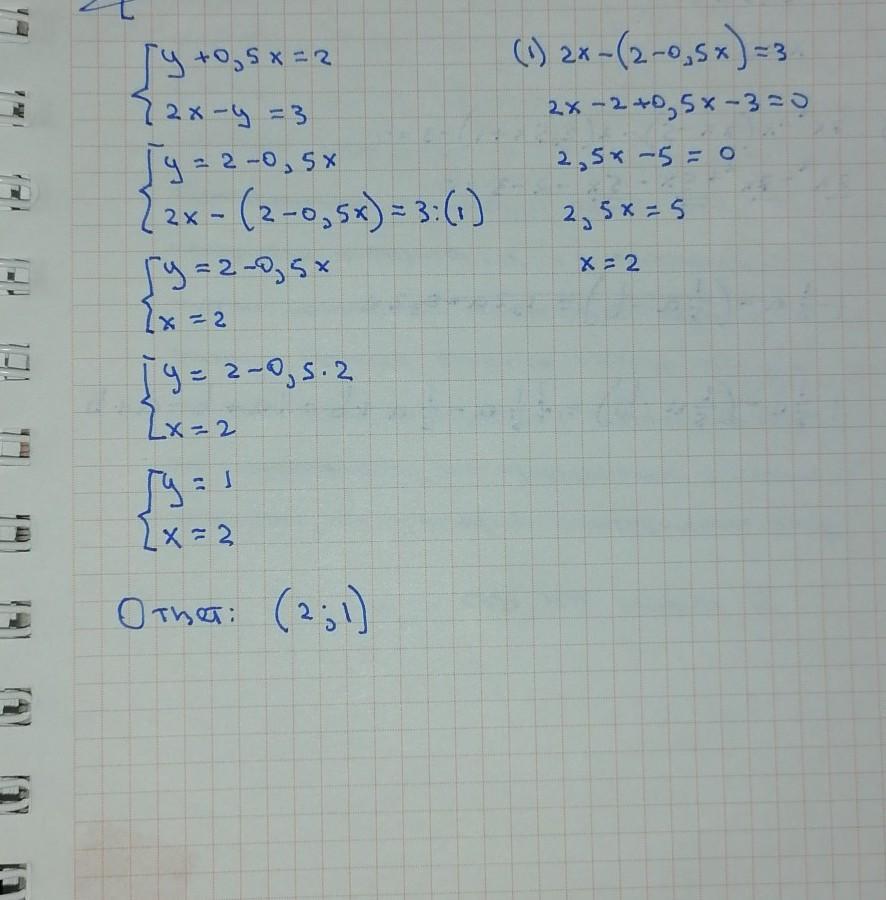 y + 0,5x = 2
2x - y = 3
y = 2 - 0,5x
2x - (2 - 0,5x) = 3 : (1)
y = 2 - 0,5x
x = 2
y = 2 - 0,5 · 2
x = 2
y = 1
x = 2
Ответ: (2;1)
(1) 2x - (2 - 0,5x) = 3
2x - 2 + 0,5x - 3 = 0
2,5x - 5 = 0
2,5x = 5
x = 2